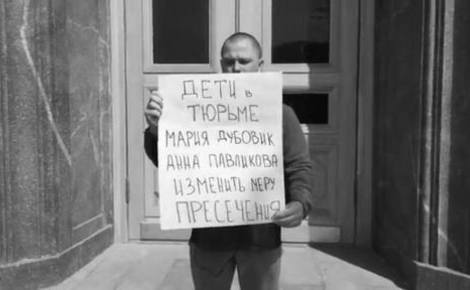 ДЕТИ в
ТЮРЬМЕ
МАРИЯ ДУБОВИК
АННА ПАВЛИКОВА
ИЗМЕНИТЬ МЕРУ
ПРЕСЕЧЕНИЯ